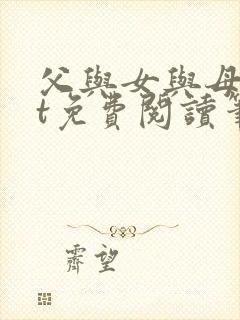 父與女與母
t免費閱讀筆
霽望